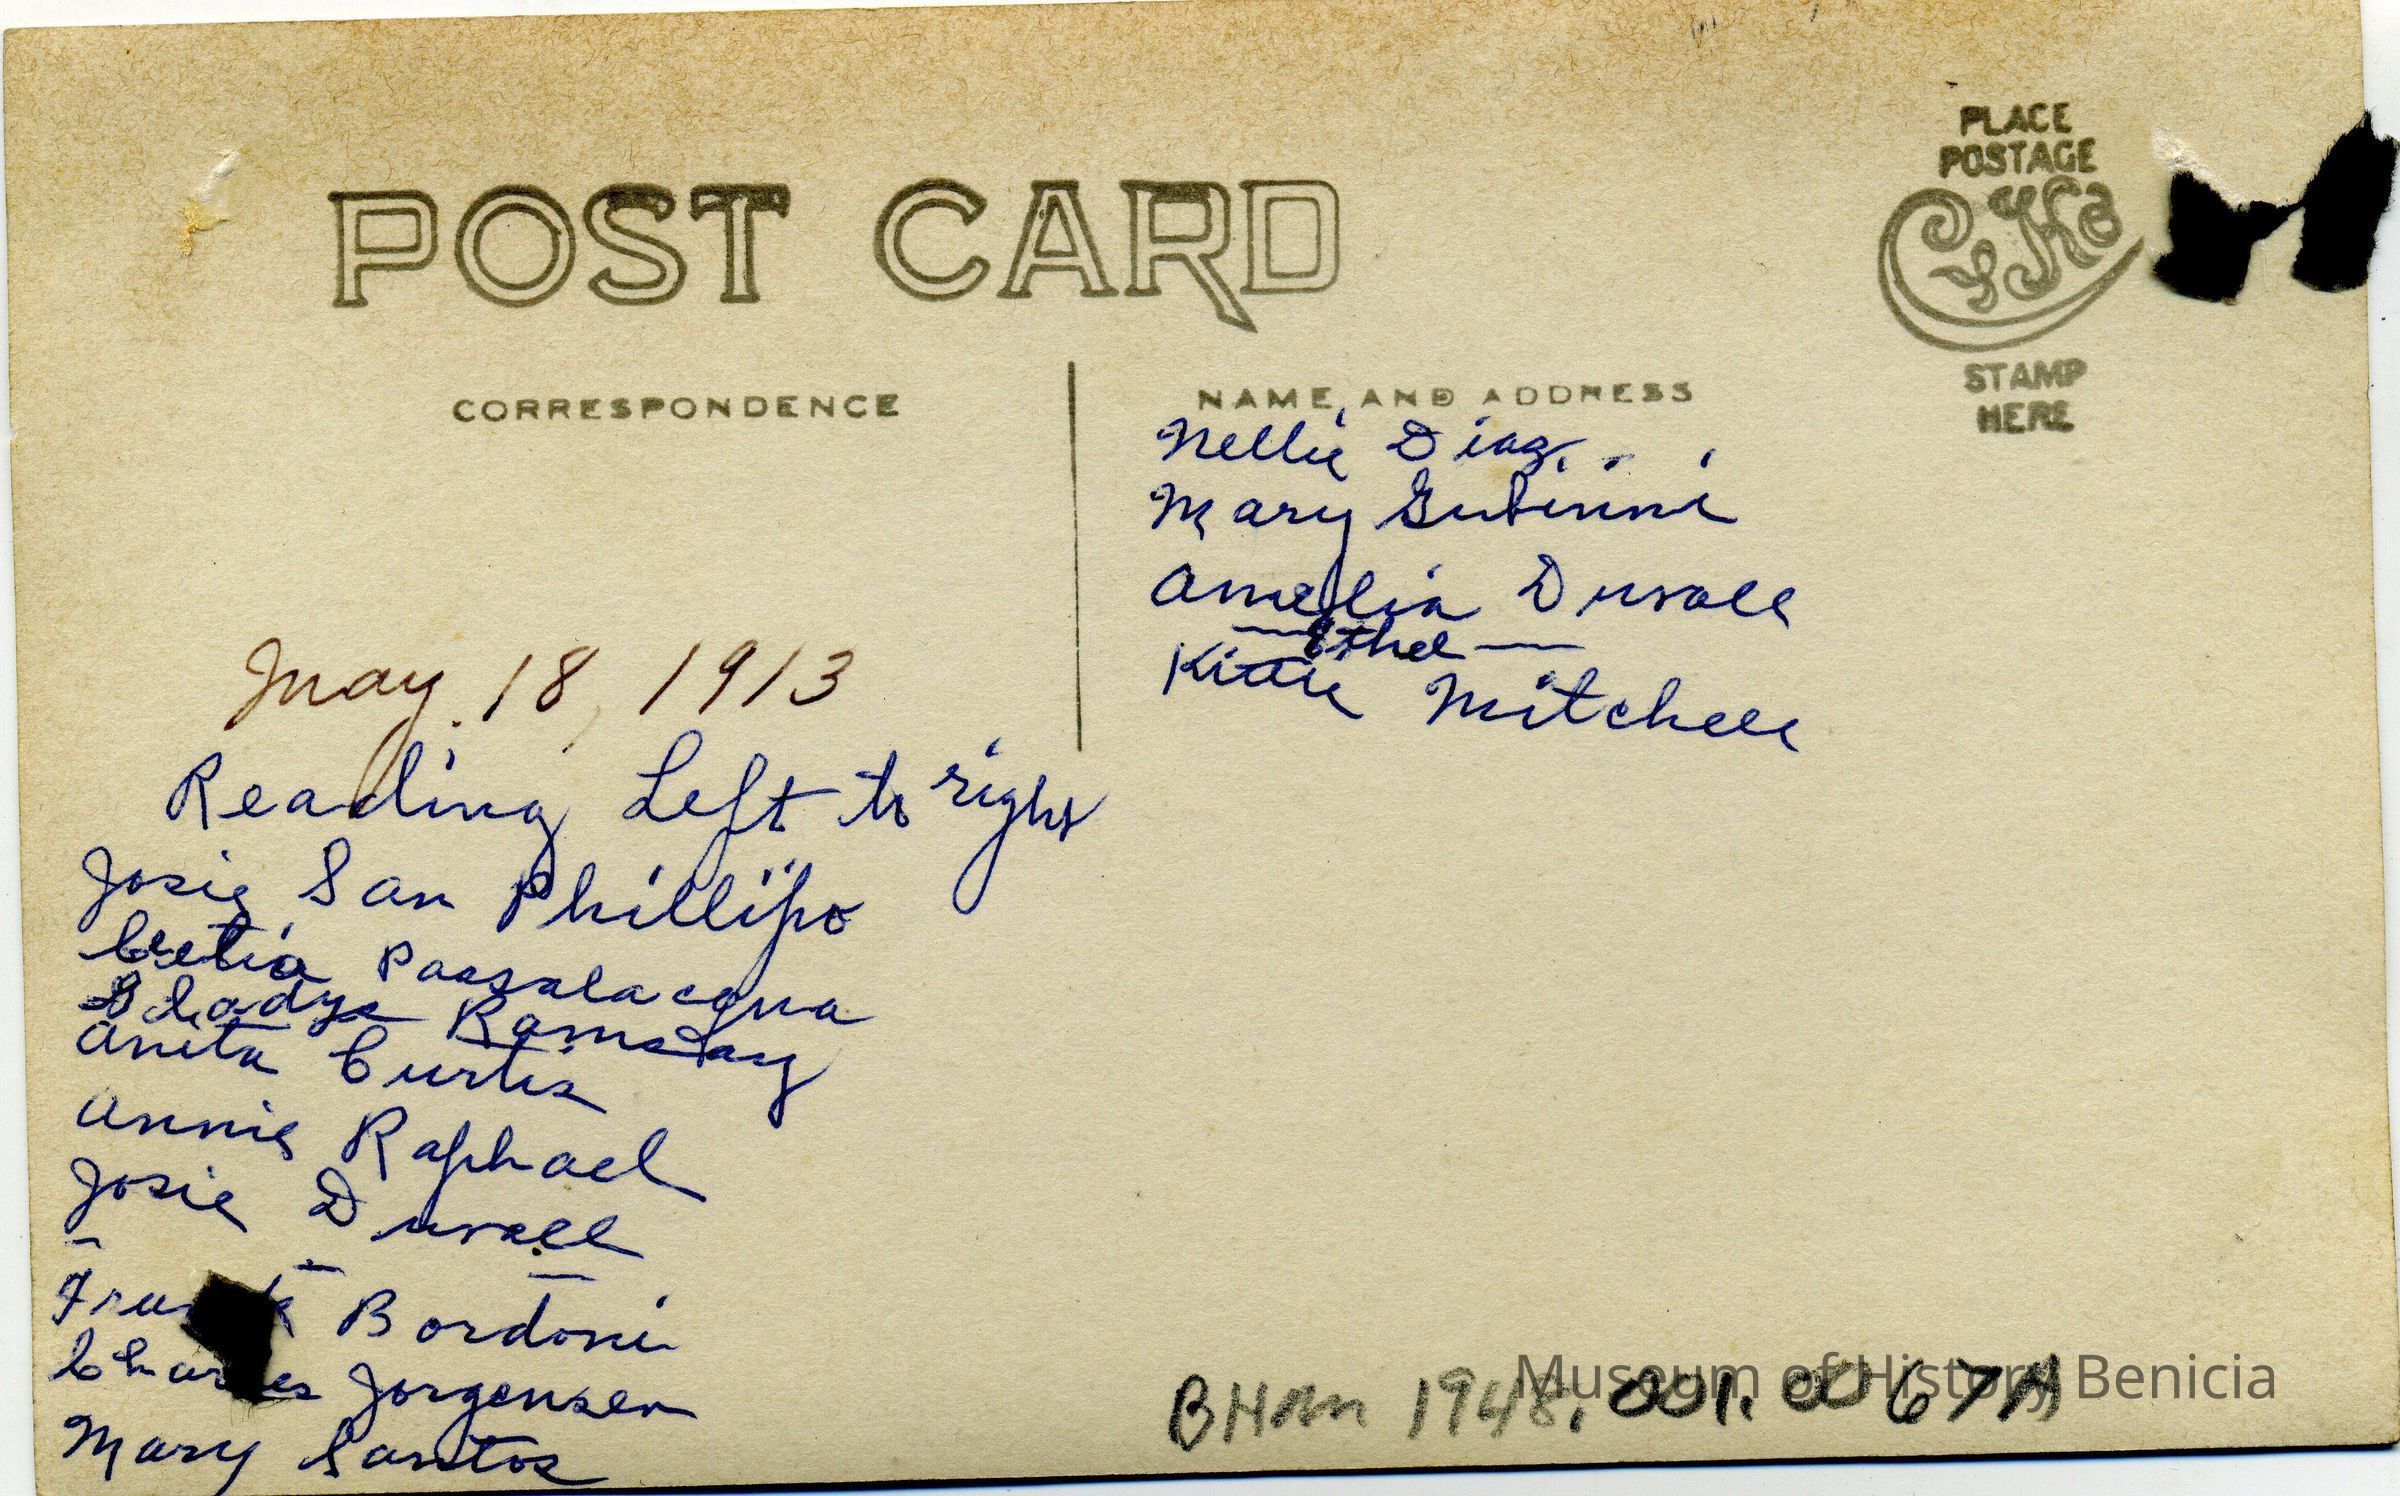 POST CARD
PLACE
POSTAGE
STAMP
HERE
CORRESPONDENCE
NAME AND ADDRESS
May 18, 1913
Reading Left to right
Josie San Phillipo
Passalacqua
Gladys Ramsay
Anita Curtis
Annie Raphael
Josie Duvall
Frank Bordoni
Charles Jorgensen
Mary Santos
Nellie Diaz
Mary
Amelia Duvall
Ethel
Katie Mitchell
BHM 1948.001.0067A
Museum of History Benicia